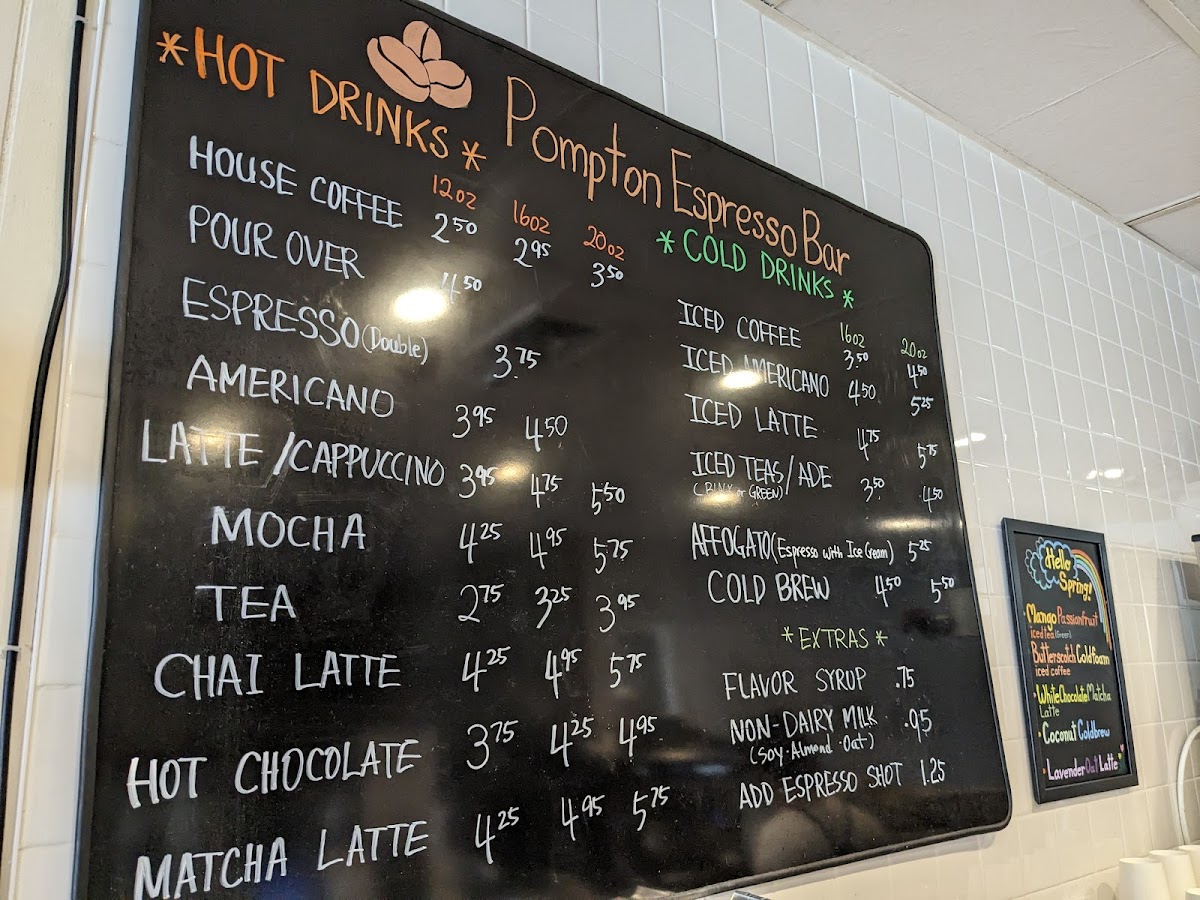 Pompton Espresso Bar
*HOT DRINKS*
12oz 16oz 20oz
HOUSE COFFEE 2.50 2.95 3.50
POUR OVER 4.50
ESPRESSO (Double) 3.75
AMERICANO 3.95 4.50
LATTE/CAPPUCCINO 3.95 4.75 5.50
MOCHA 4.25 4.95 5.75
TEA 2.75 3.25 3.95
CHAI LATTE 4.25 4.95 5.75
HOT CHOCOLATE 3.75 4.25 4.95
MATCHA LATTE 4.25 4.95 5.75
*COLD DRINKS*
16oz 20oz
ICED COFFEE 3.50 4.50
ICED AMERICANO 4.50 5.25
ICED LATTE 4.75 5.75
ICED TEAS/ADE 3.50 4.50
(BLACK or GREEN)
AFFOGATO (Espresso with Ice Cream) 5.25
COLD BREW 4.50 5.50
*EXTRAS*
FLAVOR SYRUP .75
NON-DAIRY MILK .95
(Soy·Almond·Oat)
ADD ESPRESSO SHOT 1.25
Hello
Spring!
Mango Passionfruit
iced tea (Green)
Butterscotch Coldfoam
iced coffee
White Chocolate Matcha
Latte
Coconut Coldbrew
Lavender Oat Latte